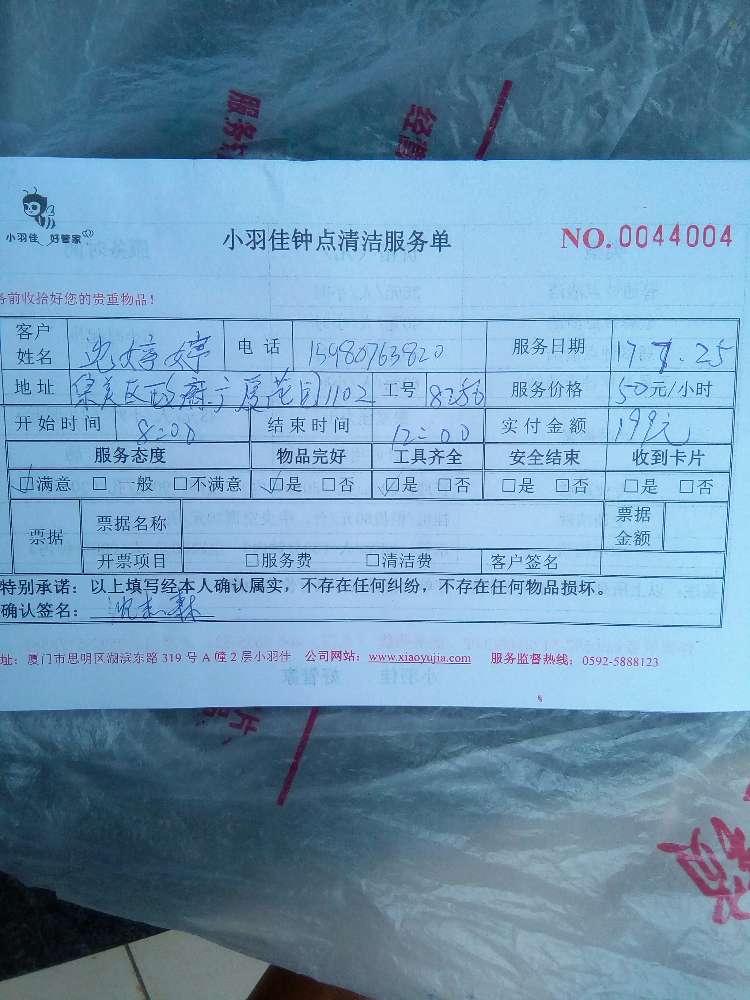 服务
经营
小羽佳 好管家
小羽佳钟点清洁服务单
NO. 0044004
务前收拾好您的贵重物品！
客户姓名 婷婷 电话 15980763820 服务日期 17.7.25
地址 集美区 广厦花园1102 工号 服务价格 50元/小时
开始时间 8:00 结束时间 12:00 实付金额 199元
服务态度 物品完好 工具齐全 安全结束 收到卡片
☑满意 □一般 □不满意 ☑是 □否 ☑是 □否 □是 □否 □是 □否
票据 票据名称 票据金额
开票项目 □服务费 □清洁费 客户签名
特别承诺：以上填写经本人确认属实，不存在任何纠纷，不存在任何物品损坏。
确认签名：
址：厦门市思明区湖滨东路 319 号 A 幢 2 层小羽佳 公司网站：www.xiaoyujia.com 服务监督热线：0592-5888123
片